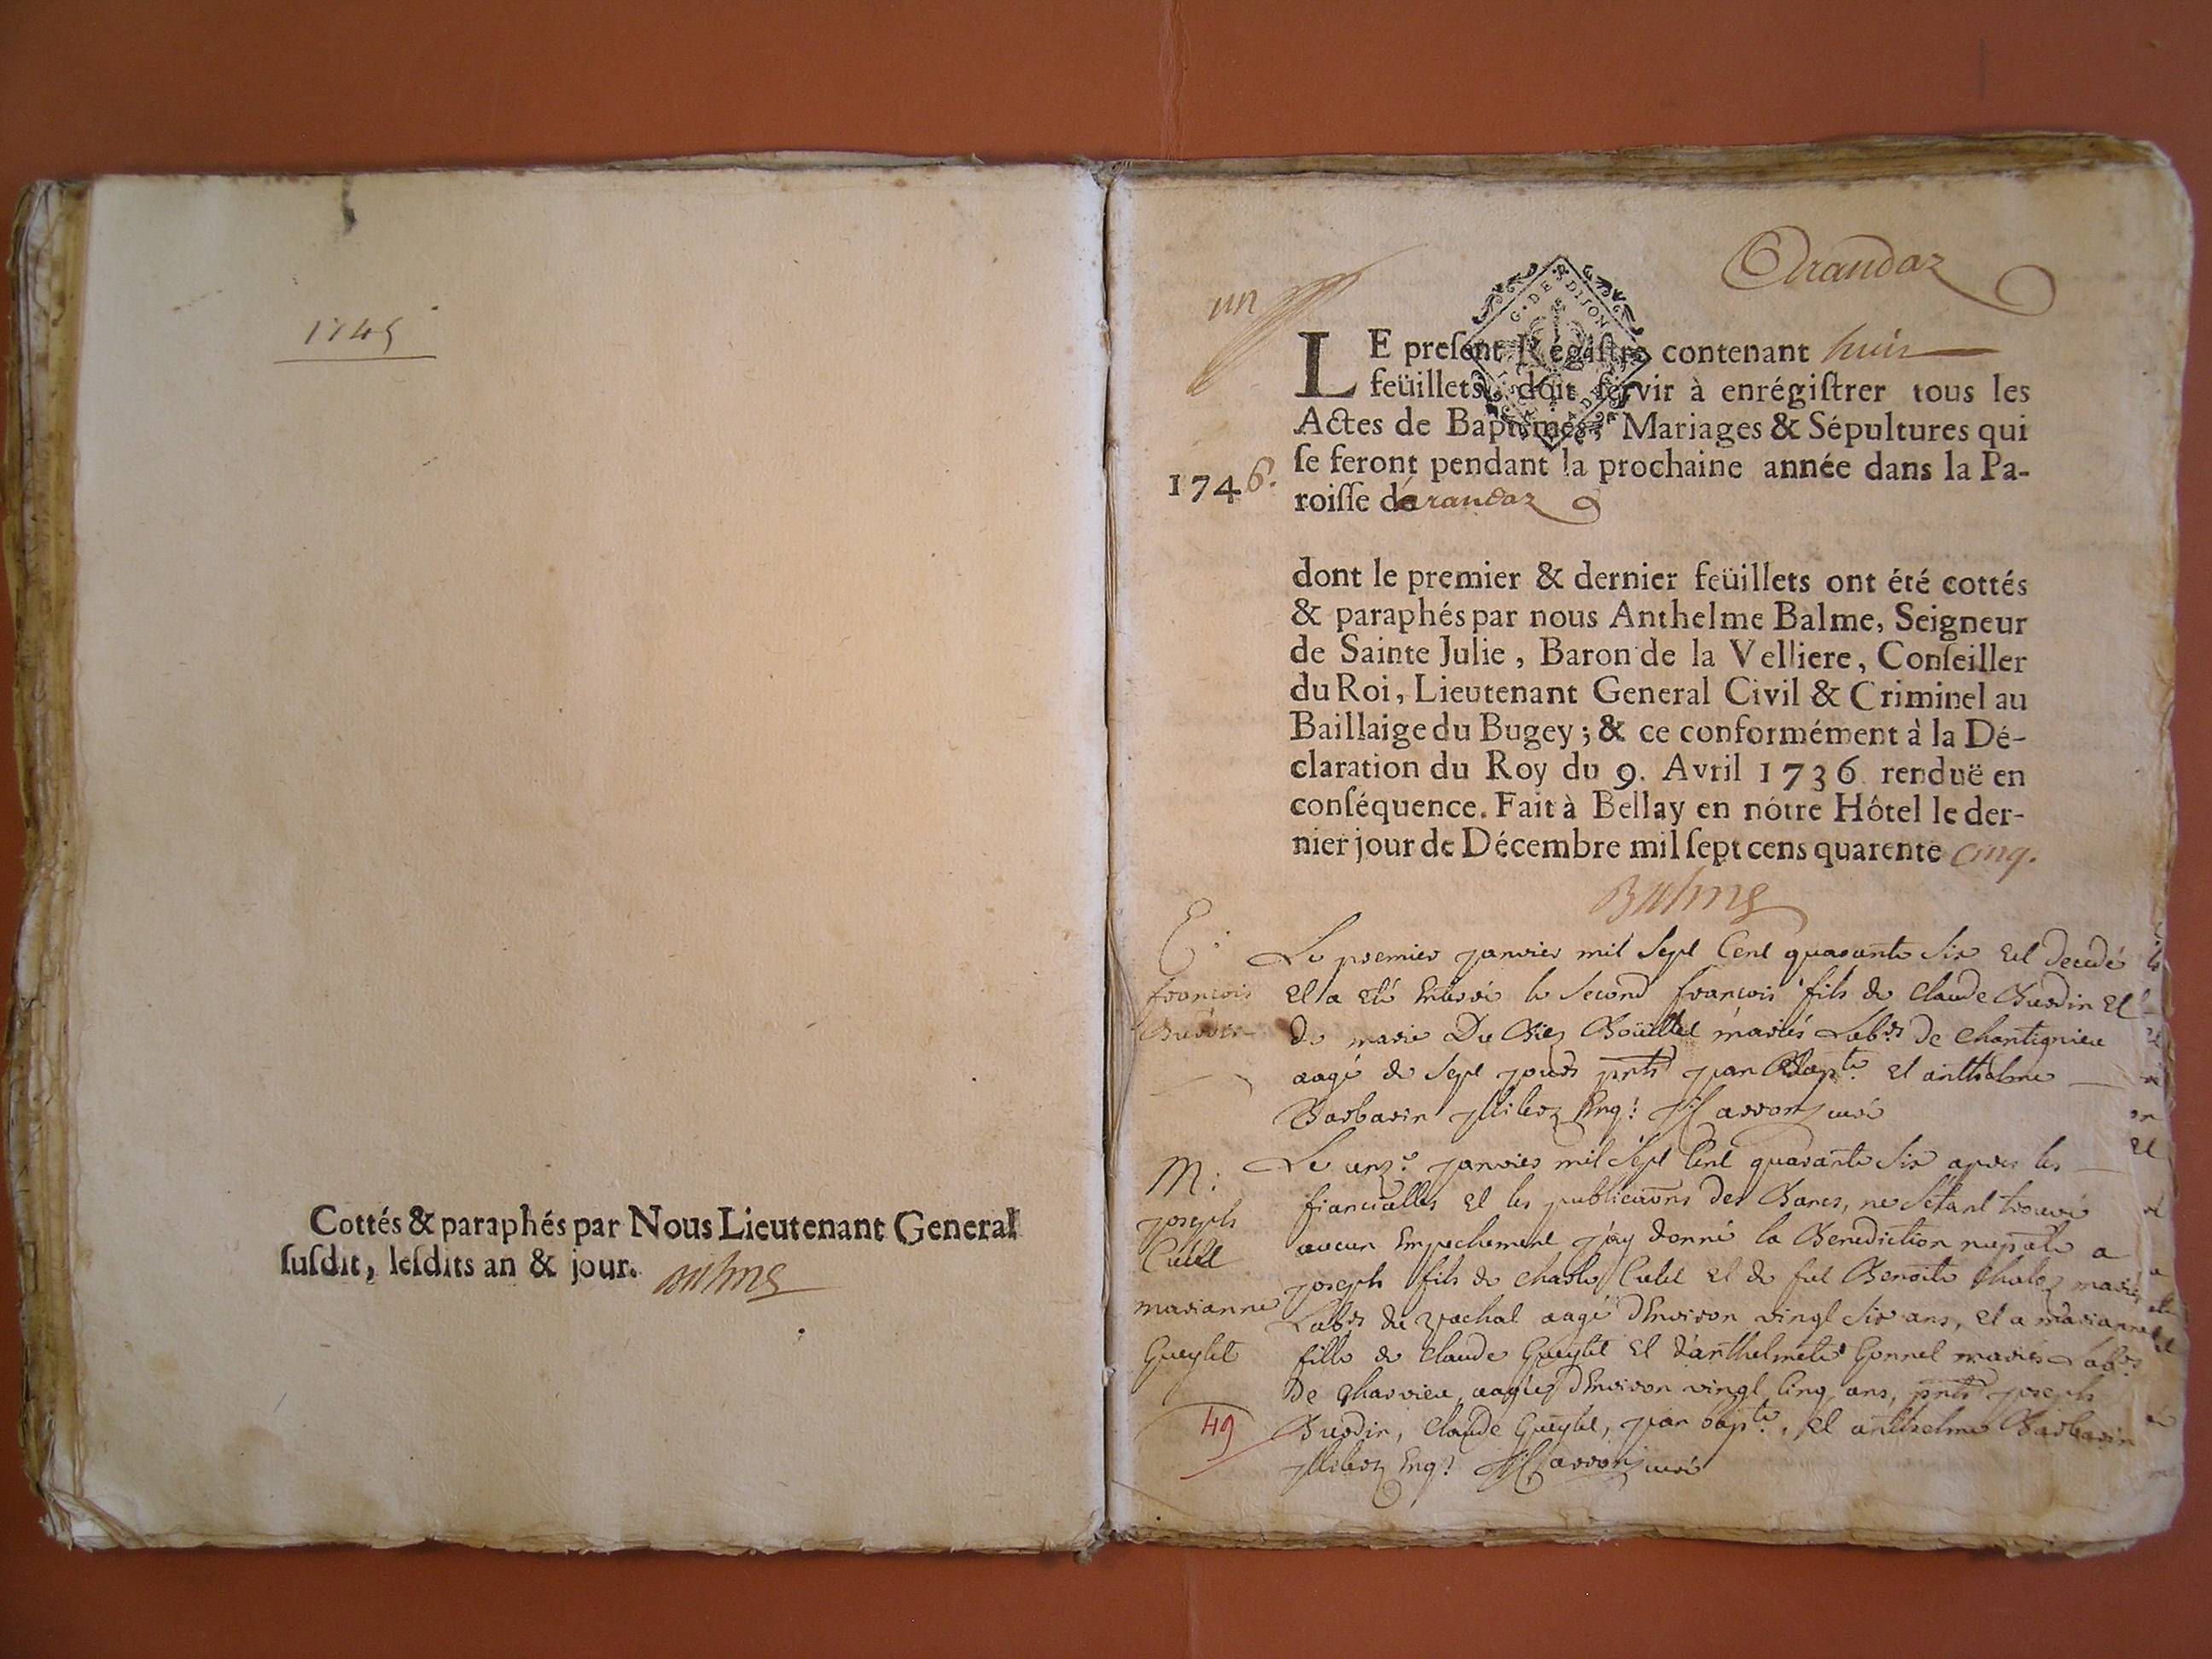 1745
Cottés & paraphés par Nous Lieutenant General
ſuſdit, leſdits an & jour. Balme
Arandaz
un
G. DE DIJON
LE preſent Régiſtre contenant huit
feüillets, doit ſervir à enrégiſtrer tous les
Actes de Baptêmes, Mariages & Sépultures qui
ſe feront pendant la prochaine année dans la Pa-
1746.
roiſſe de arandaz
dont le premier & dernier feüillets ont été cottés
& paraphés par nous Anthelme Balme, Seigneur
de Sainte Julie, Baron de la Velliere, Conſeiller
du Roi, Lieutenant General Civil & Criminel au
Baillaige du Bugey; & ce conformément à la Dé-
claration du Roy du 9. Avril 1736 renduë en
conſéquence. Fait à Bellay en nôtre Hôtel le der-
nier jour de Décembre mil ſept cens quarente cinq.
Balme
E:
françois
Burdin
Le premier janvier mil Sept Cent quarante Six Est decedé
Et a eté Enterré le Second françois fils de Claude Burdin Et
de marie Du Biez Boüillet mariés Lab.rs de Chantignieu
aagé de Sept jours pnts jean Bapt.e Et anthelme
Barbarin jlliterz Enq.s Marron curé
M:
joseph
Cutet
marianne
Gueylet
49
Le unz.e janvier mil Sept Cent quarante Six apres les
fiancialles Et les publications des Bancs, ne S'etant trouvé
aucun Empechement j'ay donné la Benediction nup~ale a
joseph fils de Charle Cutet Et de fut Benoite mariés
Lab.rs du aagé d'Environ vingt Six ans, Et a marianne
fille de Claude Gueylet Et d'anthelmete Gonnet mariés Lab.rs
De Charvieu aagée d'Environ vingt Cinq ans, pnts joseph
Burdin, Claude Gueylet, jean bapt.e, Et anthelme Barbarin
jlliterz Enq.s Marron curé